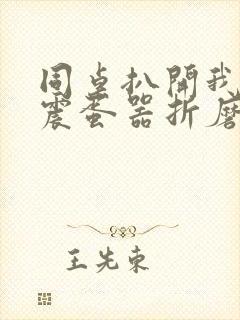 同桌扒開我
震蛋器折磨
王先東